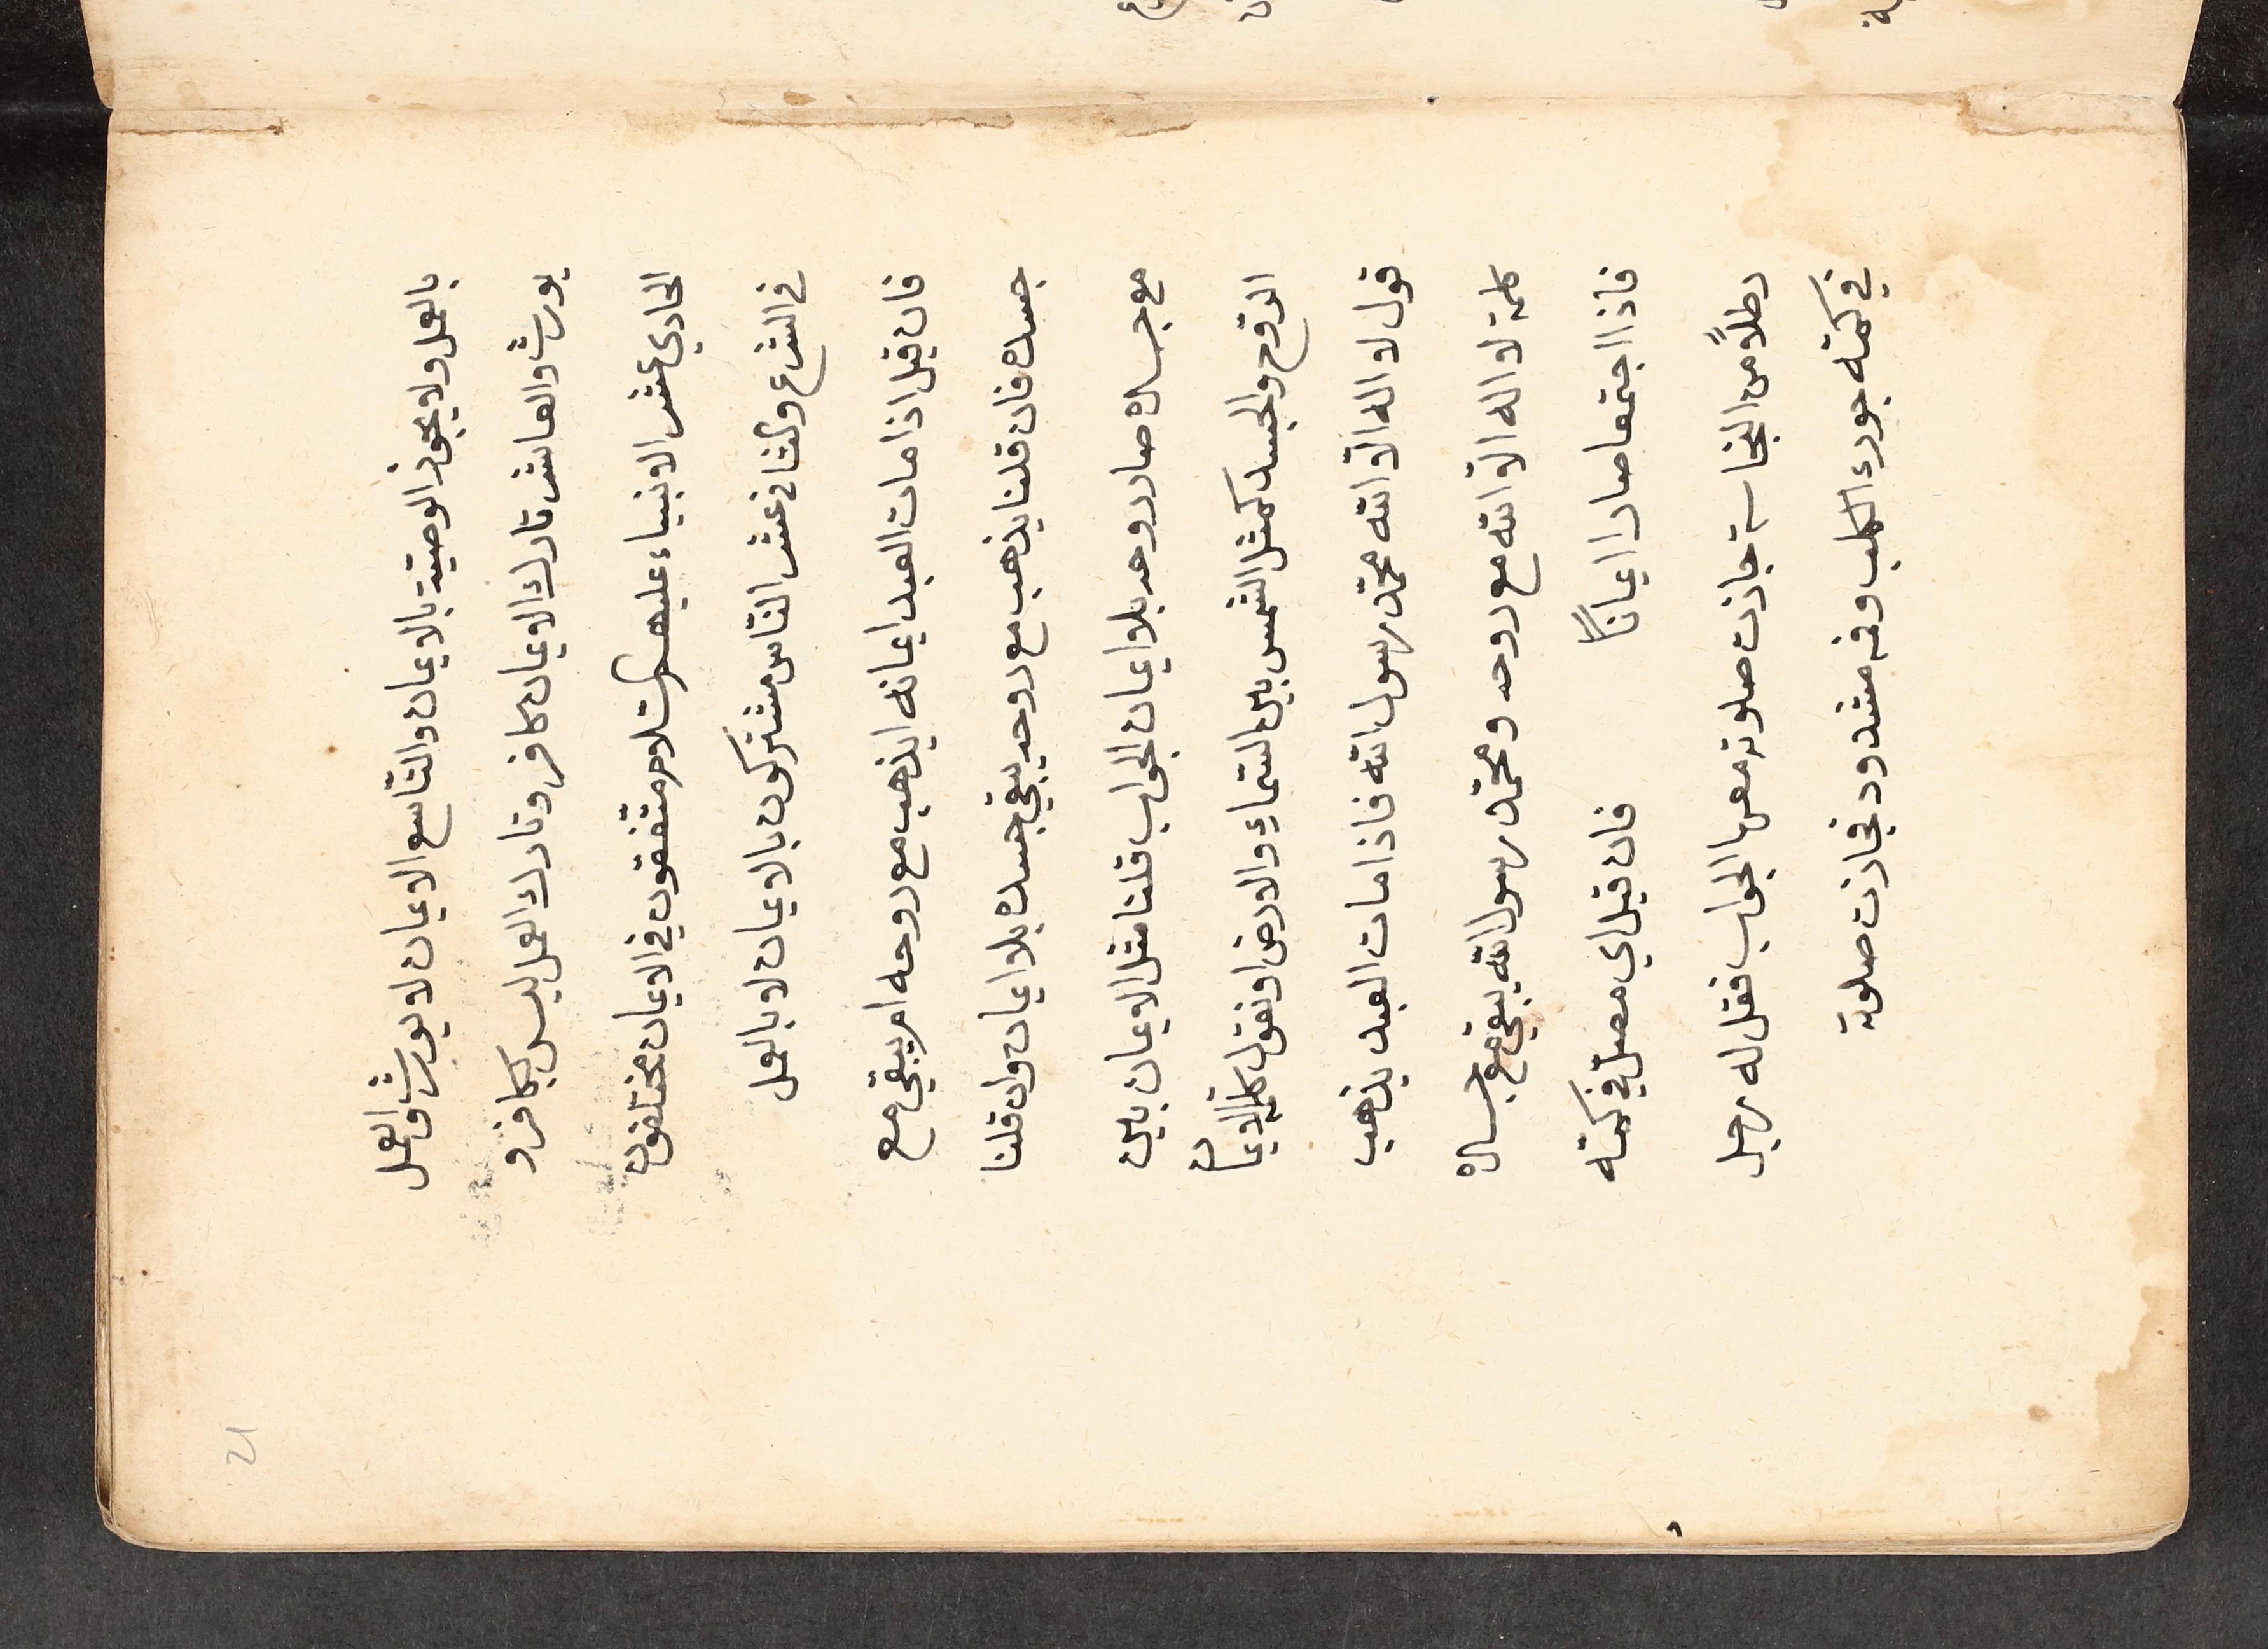 بالعمل ولا يجوز الوصيّة بالايمان والتّاسع الايمان لا يورث والعمل
يورث والعاشر تارك الايمان كافر وتارك العمل ليس بكافر و
الحادي عشر الانبياء عليهم السّلام متّفقون في الايمان مختلفون
في الشرع والثاني عشر النّاس مشتركون بالايمان لا بالعمل
فان قيل اذا مات العبد ايمانه ايذهب مع روحه ام يبقي مع
جسده فان قلنا يذهب مع روحه يبقي جسده بلا ايمان وان قلنا
مع جسده صار روحه بلا ايمان الجواب قلنا مثل الايمان بين
الرّوح والجسد كمثل الشّمس بين السّماء والارض او نقول كلمة الايمان
قول لا اله الّا الله محمّد رسول الله فاذا مات العبد يذهب
كلمة لا اله الّا الله مع روحه ومحمّد رسول الله يبقي مع جسده
فاذا اجتمعا صارا ايمانًا فان قيل اي مصلّ في كمّه
رطلًا من النجاسة جازت صلوته معها الجواب فقل له رجل
في كمّه جورء الكلب وفمه مشدود فجازت صلوة
21